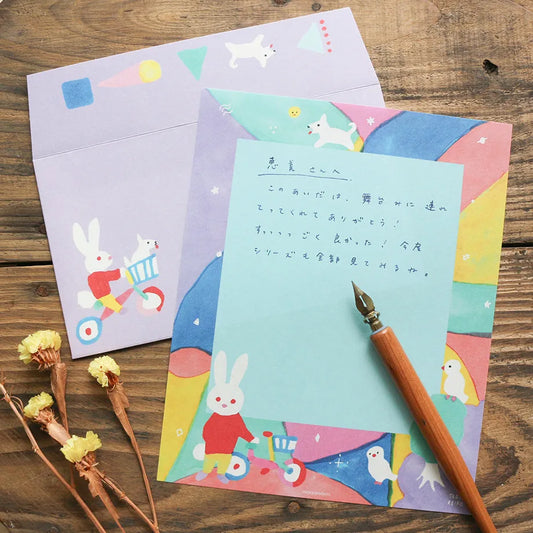 恵美さんへ
このあいだは、舞台みに連れ
てってくれてありがとう！
すぃっっごく良かった！今度
シリーズも全部見てみるね。